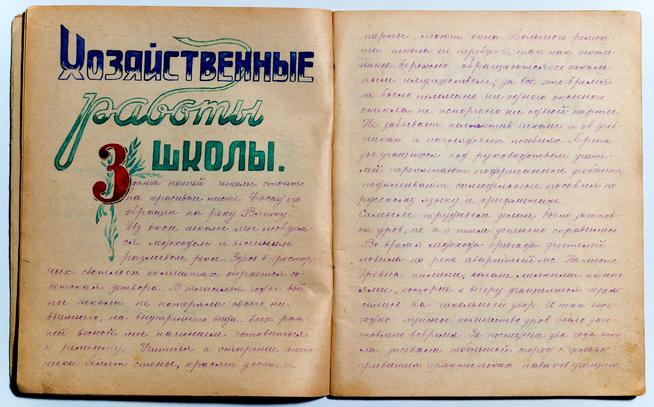 Хозяйственные
работы
школы.
Здание нашей школы стоит
на красивом месте. Фасад его
обращен на реку Вятку.
Из окон школы мы любуем-
ся ледоходом и весенним
разливом реки. Здесь в простор-
ных светлых комнатах обучается со-
ветская детвора. В тяжелые годы вой-
ны школа не потеряла своего ни
внешнего, ни внутреннего вида. Всех ран-
ней весной мы начинаем готовиться
к ремонту. Учителя и старшие школь-
ники белят стены, красят доски и
парты, моют окна. Большого ремон-
та школа не требует, так как школь-
ники бережно обращаются со школь-
ным имуществом, за все это время
не было поломано ни одного оконного
стекла, не испорчено ни одной парты.
Не забывает коллектив школы и об учеб-
никах и наглядных пособиях. Брига-
ды учащихся под руководством учите-
лей переплетают подержанные учебники,
подклеивают самодельные пособия по
русскому языку и арифметике.
Самым трудным делом было заготов-
ка дров, но и с этим успешно справились.
Во время ледохода бригада учителей
ловила на реке аварийный лес. На месте
бревна пилили, кололи мелкими полень-
ями, которые к вечеру учащимися перено-
сились на школьный двор. И так еже-
годно нужное количество дров было заго-
товлено вовремя. За последние два года шко-
ла засевала табачный огород с целью
привития практических навыков учащим